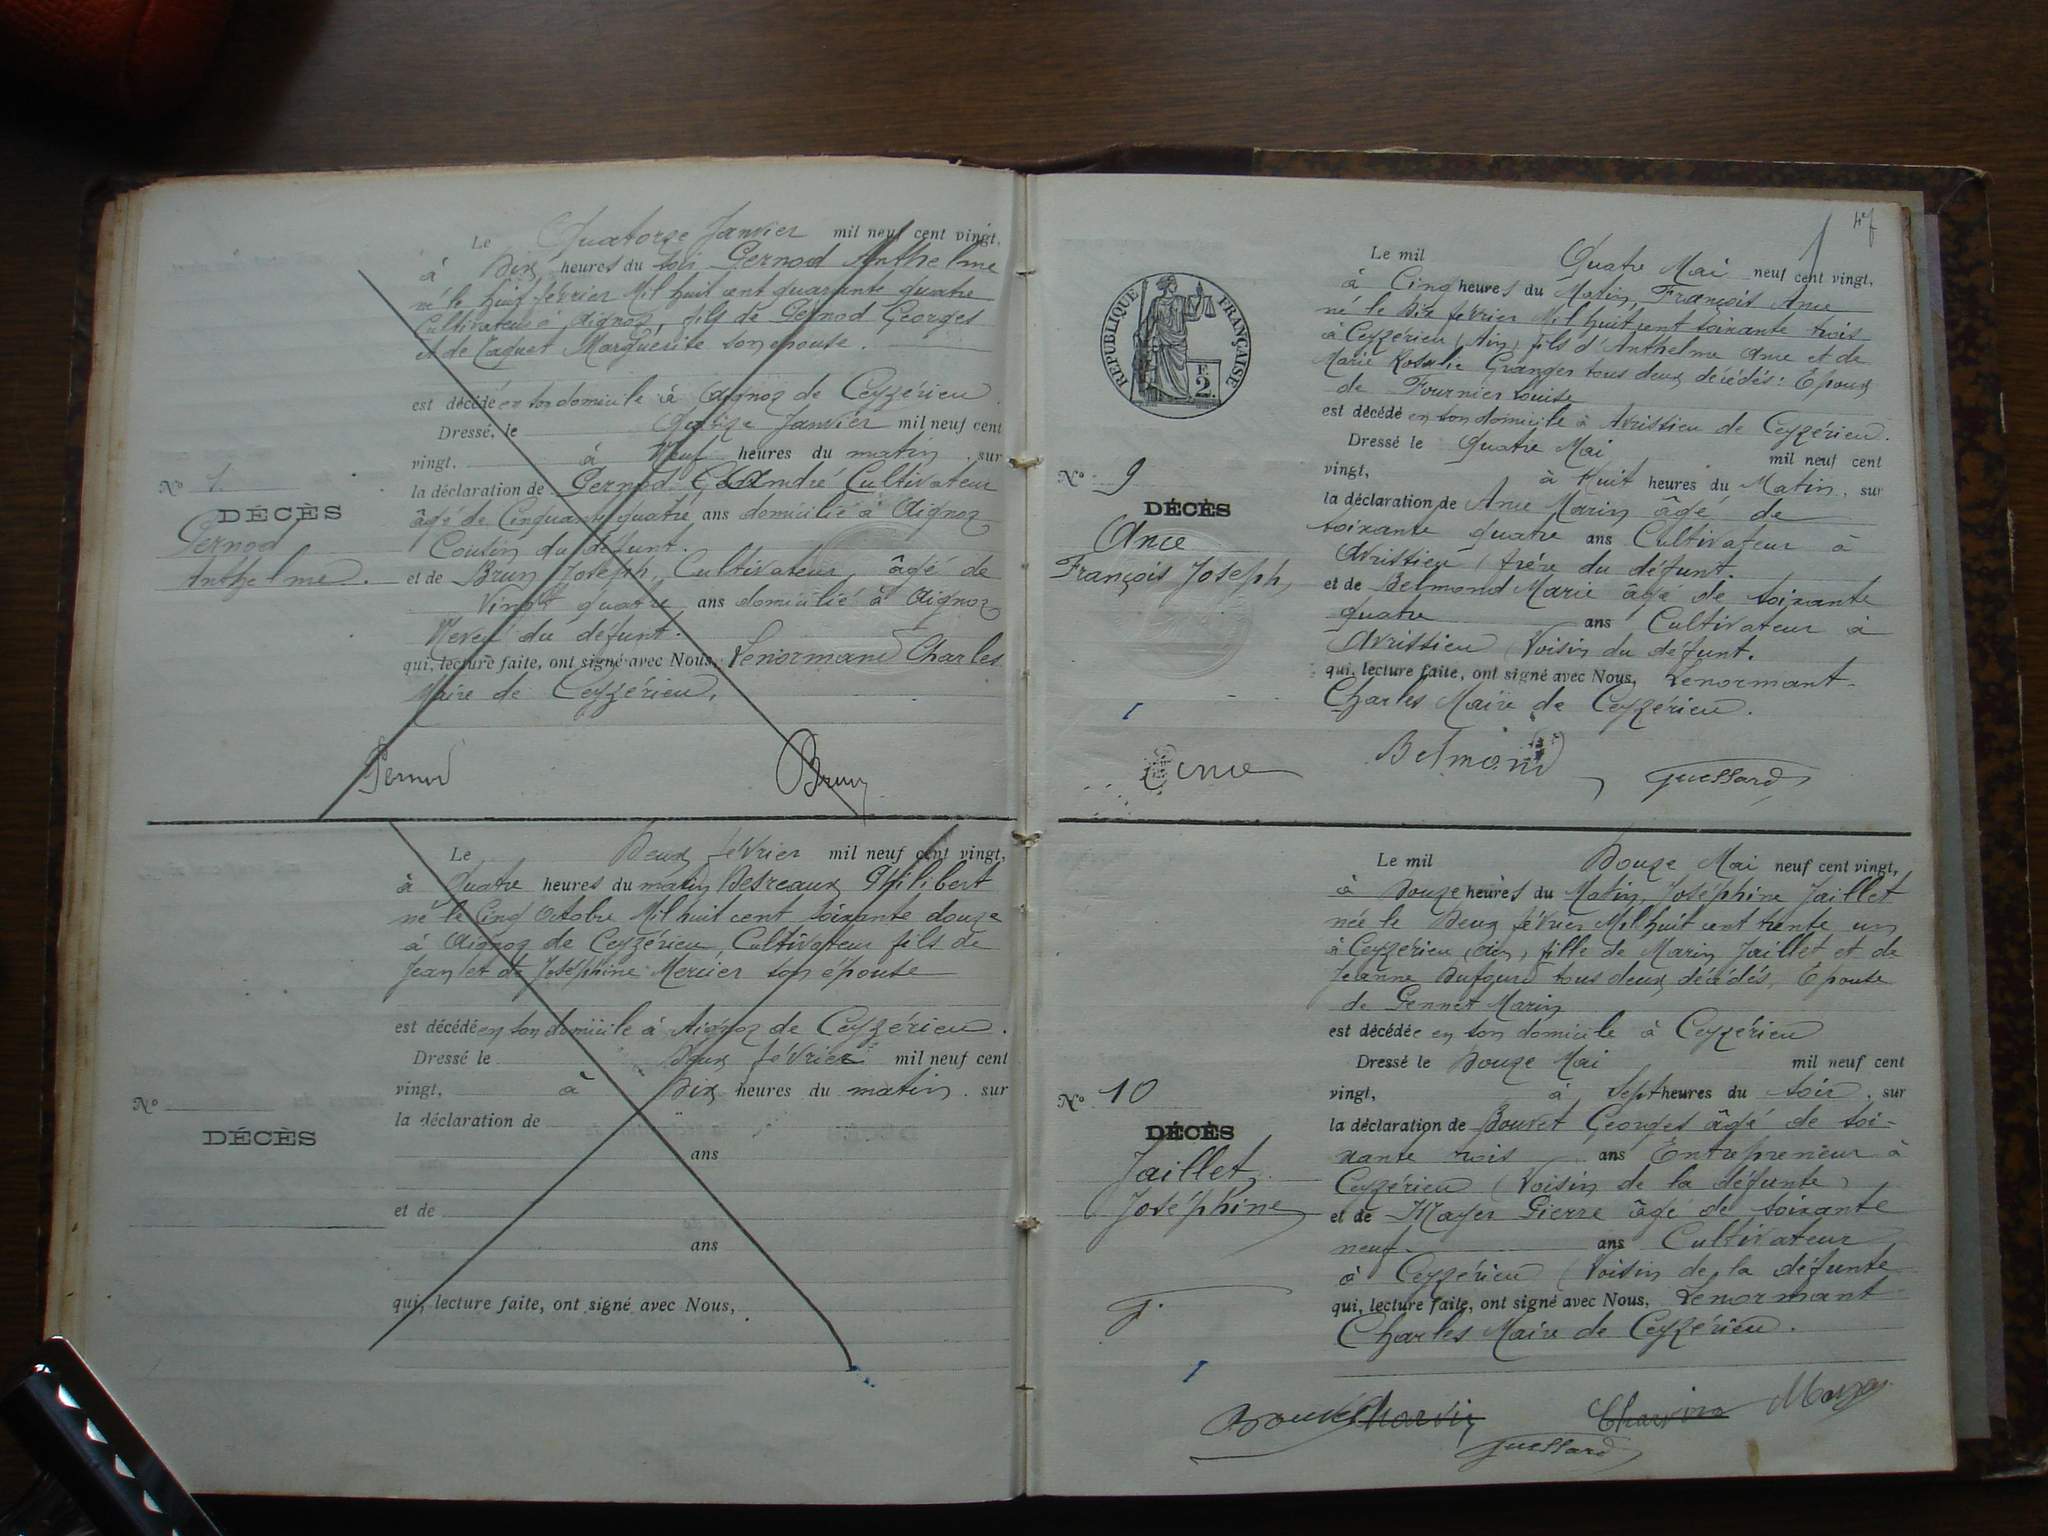 Le Quatorze Janvier mil neuf cent vingt,
à Dix heures du soir Pernod Anthelme
né le huit février Mil huit cent quarante quatre
Cultivateur à Aignoz, fils de Pernod Georges
et de Caquet Marguerite son épouse.
est décédé en son domicile à Aignoz de Ceyzérieu.
Dressé, le Quinze Janvier mil neuf cent
vingt, à Neuf heures du matin, sur
la déclaration de Pernod André Cultivateur
âgé de Cinquante quatre ans domicilié à Aignoz
Cousin du défunt.
et de Brun Joseph, Cultivateur, âgé de
Vingt quatre ans domicilié à Aignoz
Neveu du défunt.
qui, lecture faite, ont signé avec Nous, Lenormand Charles
Maire de Ceyzérieu.
No 1
DÉCÈS
Pernod
Anthelme.
Pernod Brun
Le Deux février mil neuf cent vingt,
à Quatre heures du matin Desreaux Philibert
né le Cinq Octobre Mil huit cent soixante douze
à Aignoz de Ceyzérieu, Cultivateur fils de
Jean et de Joséphine Mercier son épouse
est décédé en son domicile à Aignoz de Ceyzérieu.
Dressé le Deux février mil neuf cent
vingt, à Dix heures du matin, sur
la déclaration de
ans
et de
ans
qui, lecture faite, ont signé avec Nous,
No
DÉCÈS
47
RÉPUBLIQUE FRANÇAISE
2 F.
Le mil Quatre Mai neuf cent vingt,
à Cinq heures du Matin, François Ance
né le Dix février Mil huit cent soixante trois
à Ceyzérieu (Ain) fils d'Anthelme Ance et de
Marie Rosalie Granger tous deux décédés: Epoux
de Fournier Louise
est décédé en son domicile à Avrissieu de Ceyzérieu.
Dressé le Quatre Mai mil neuf cent
vingt, à Huit heures du Matin, sur
la déclaration de Ance Marin âgé de
soixante quatre ans Cultivateur à
Avrissieu, frère du défunt.
et de Belmond Marie âgé de soixante
quatre ans Cultivateur à
Avrissieu Voisin du défunt.
qui, lecture faite, ont signé avec Nous, Lenormant
Charles Maire de Ceyzérieu.
No 9
DÉCÈS
Ance
François Joseph,
Ance Belmond Guessard
Le mil Douze Mai neuf cent vingt,
à Douze heures du Matin, Joséphine Jaillet
née le Deux février Mil huit cent trente un
à Ceyzérieu (Ain), fille de Marin Jaillet et de
Jeanne tous deux décédés, Epouse
de Pennet Marin
est décédée en son domicile à Ceyzérieu
Dressé le Douze Mai mil neuf cent
vingt, à Sept heures du soir, sur
la déclaration de Bouvet Georges âgé de soi-
xante trois ans Entrepreneur à
Ceyzérieu (Voisin de la défunte)
et de Mayer Pierre âgé de soixante
neuf ans Cultivateur
à Ceyzérieu (Voisin de la défunte
qui, lecture faite, ont signé avec Nous, Lenormant
Charles Maire de Ceyzérieu.
No 10
DÉCÈS
Jaillet
Joséphine
Bouvet Charvin Charvin Mayer
Guessard